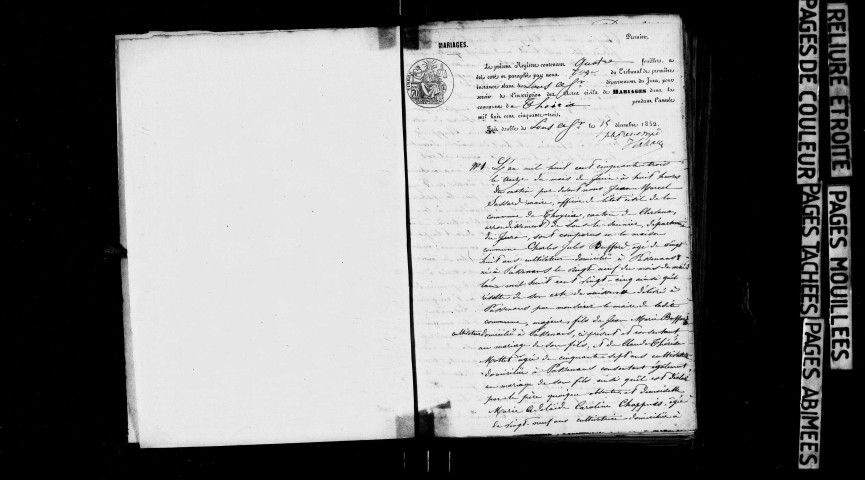 MARIAGES.
Premier.
Le présent Registre contenant Quatre feuillets, a
été coté et paraphé par nous Juge du Tribunal de première
instance séant de Lons le S.r département du Jura, pour
servir de l'inscription des Actes civils de MARIAGES dans la
commune de Thoiria pendant l'année
mil huit cent cinquante-trois.
Lons le S.r le 15 décembre 1852
N° 1. L'an mil huit cent cinquante trois
le onze du mois de Juin à huit heures
du matin par devant nous Jean Marcel
maire, officier de l'état civil de la
commune de Thoyria, canton de
arrondissement de Lons le Saunier, département
du Jura, sont comparus en la maison
commune Charles Jules Buffard agé de vingt
huit ans cultivateur domicilié à Passenans
né à Passenans le vingt neuf du mois de
l'an mil huit cent vingt-cinq ainsi qu'il
résulte de son acte de naissance délivré à
Passenans par monsieur le maire de ladite
commune, majeur, fils de Jean Marie Buffard
cultivateur domicilié à Passenans, ci présent et consentant
au mariage de son fils, et de Claude Thérèse
Mottet agée de cinquante sept ans cultivatrice
domiciliée à Passenans consentant également
au mariage de son fils ainsi qu'il est déclaré
par le père quoique absente et demoiselle
Marie Adelaide Caroline Chappuis, agée
de vingt neuf ans cultivatrice domiciliée à
RELIURE ETROITE
PAGES DE COULEUR
PAGES MOUILLEES
PAGES TACHEES
PAGES ABIMEES